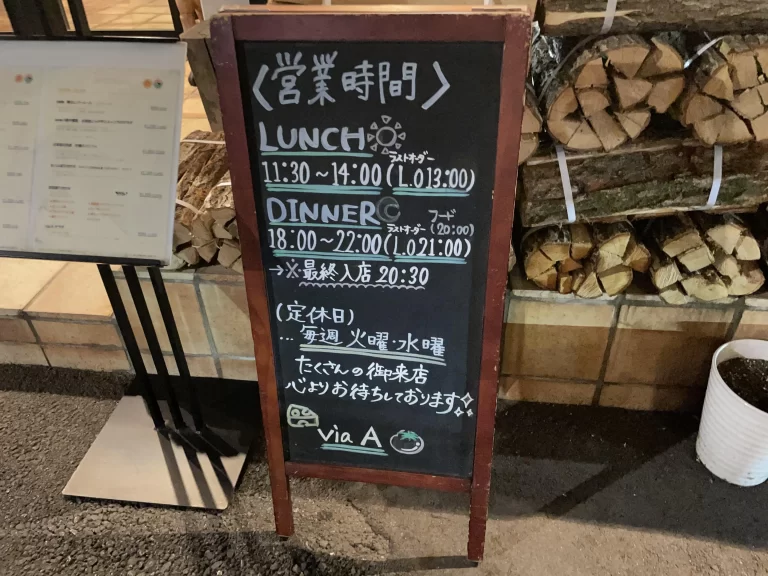 〈営業時間〉
LUNCH
ラストオーダー
11:30～14:00(L.O13:00)
DINNER
フード
ラストオーダー (20:00)
18:00～22:00(L.O21:00)
→※最終入店20:30
(定休日)
…毎週 火曜・水曜
たくさんの御来店
心よりお待ちしております
via A